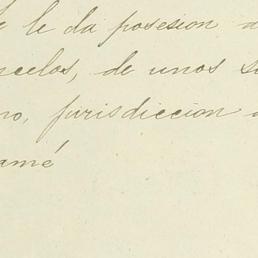 le da posesion
celos, de unos
jurisdiccion
amé